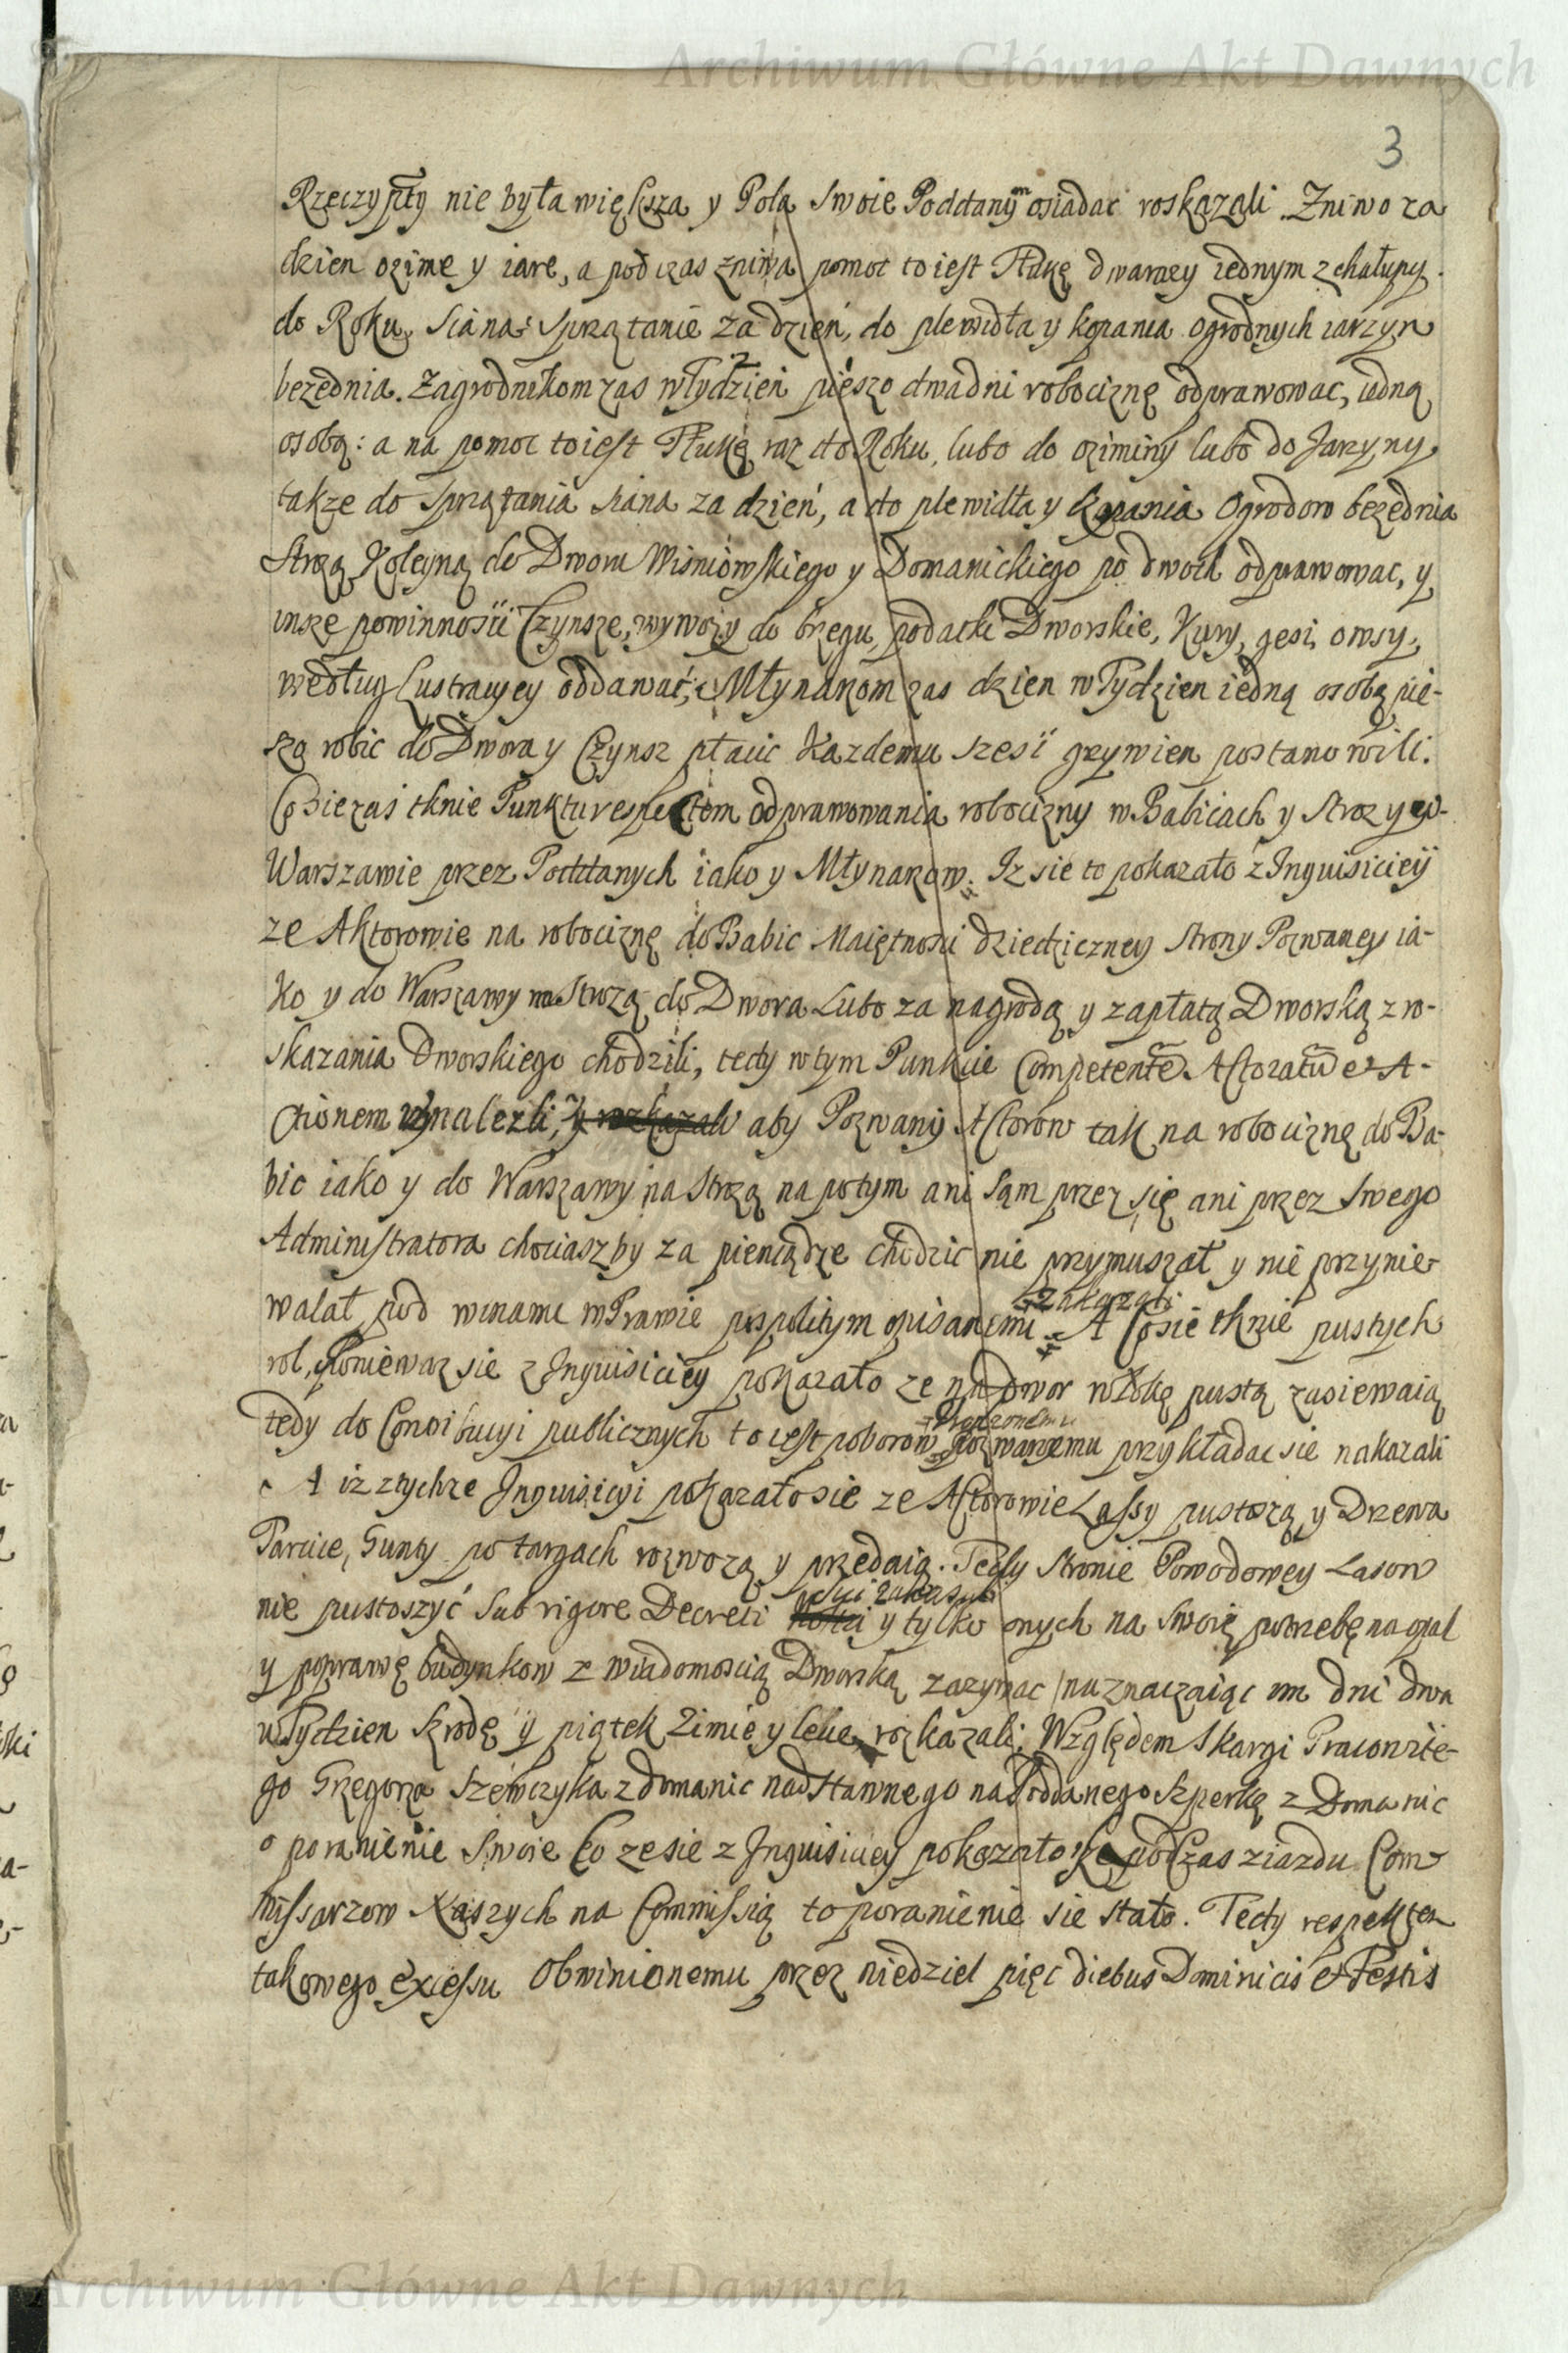 Archiwum Główne Akt Dawnych
3
Rzeczypty nie była większa y Pola swoie Poddanym osiadac roskazali. Zniwo za
dzien ozime y iare, a podczas zniwa pomoc to iest Tłukę dwaraey iednym z chałupy
do Roku, Siana sprzątanie za dzień, do plewidła y kopania ogrodnych iarzyn
bezednia. Zagrodnikom zas w Tydzień pieszo dwa dni robociznę odprawowac, iedną
osobą: a na pomoc to iest Tłukę raz do Roku, lubo do oziminy lubo do Jarzyny
takze do sprzątania siana za dzień, a do plewidła y kopania Ogrodow bezednia
Strozą Koleyną do Dworu Wisniowskiego y Domanickiego po dwoch odprawowac, y
insze powinnosci Czynsze, wywozy do brzegu, podatki Dworskie, Kury, gęsi, owsy,
według Lustracyey oddawać; Młynarom zas dzien w Tydzien iedną osobą pie-
szo robic do Dwora y Czynsz płacic Kazdemu szesc grzywien postanowili.
Co się zaś tknie Punktu respectem odprawowania robocizny w Babicach y Strozy w
Warszawie przez Poddanych iako y Młynarow. Iz sie to pokazało z Inquisiciey
ze Aktorowie na robociznę do Babic Maiętnosci dziedziczney Strony Pozwaney ia-
ko y do Warszawy na Strozą do Dwora Lubo za nagrodą y zapłatą Dworską z ro-
skazania Dworskiego chodzili, tedy w tym Punkcie Competente Actoratu et A-
ctionem wynalezli, y rozkazali aby Pozwany Actorow tak na robociznę do Ba-
bic iako y do Warszawy na Strozą na potym ani sąm przez się ani przez swego
Administratora chociaszby za pieniądze chodzic nie przymuszał y nie przynie-
zakazali
walał pod winami w Prawie pospolitym opisanemi. A Co sie tknie pustych
rol, Poniewaz sie z Inquisiciey pokazało ze na Dwor włokę pustą zasiewaią
tedy do Contribucyi publicznych to iest poborow pozwanemu przykładac sie nakazali
A iz z tychze Inquisicyi pokazało sie ze Actorowie Lassy pustoszą y Drzewa
Parcie, Gunty po targach rozwozą y przedaią. Tedy Stronie Powodowey Lasow
zakazali
nie pustoszyć sub rigore Decreti y tylko onych na swoię potrzebę na opał
y poprawę budynkow z wiadomoscią Dworską zazywac naznaczaiąc im dni dwa
w Tydzien Srzodę y piątek Zimie y lecie rozkazali; Względem Skargi Pracowite-
go Grzegorza Szewczyka z Domanic nad Stawnego na Poddanego Szperkę z Domanic
o poranienie swoie Co ze sie z Inquisiciey pokazało ze podczas ziazdu Com
missarzow Naszych na Commissią to poranienie sie stało. Tedy respektem
takowego excessu Obwinionemu przez niedziel pięc diebus Dominicis et Festis
Archiwum Główne Akt Dawnych